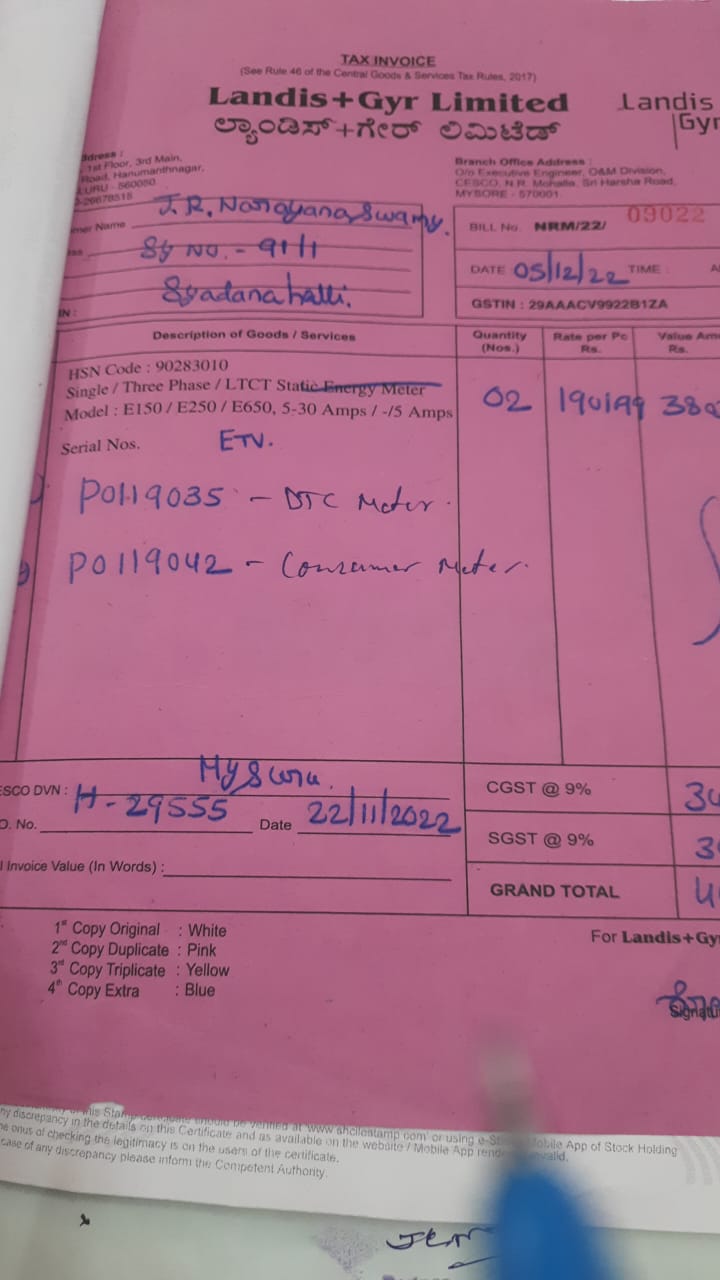 TAX INVOICE
(See Rule 46 of the Central Goods & Services Tax Rules, 2017)
Landis+Gyr Limited
ಲ್ಯಾಂಡಿಸ್+ಗೇರ್ ಲಿಮಿಟೆಡ್
Landis
Gyr
ddress :
1st Floor, 3rd Main,
Road, Hanumanthnagar,
URU - 560050
-26678518
Branch Office Address :
O/o Executive Engineer, O&M Division,
CESCO, N.R. Mohalla, Sri Harsha Road,
MYSORE - 570001
mer Name J.R. Narayana Swamy.
ss Sy No. - 91/1
Syadanahalli.
IN :
BILL No. NRM/22/ 09022
DATE 05/12/22 TIME : A
GSTIN : 29AAACV9922B1ZA
Description of Goods / Services Quantity (Nos.) Rate per Pc Rs. Value Am Rs.
HSN Code : 90283010
Single / Three Phase / LTCT Static Energy Meter
Model : E150 / E250 / E650, 5-30 Amps / -/5 Amps 02 190199 380
Serial Nos. ETV.
P0119035 - DTC Meter.
P0119042 - Consumer Meter.
ESCO DVN : Mysuru.
O. No. H-29555 Date 22/11/2022
l Invoice Value (In Words) :
CGST @ 9% 34
SGST @ 9% 3
GRAND TOTAL 4
1st Copy Original : White
2nd Copy Duplicate : Pink
3rd Copy Triplicate : Yellow
4th Copy Extra : Blue
For Landis+Gy
Signatu
ny discrepancy in the details on this Certificate and as available on the website / Mobile App renders it invalid.
he onus of checking the legitimacy is on the users of the certificate.
case of any discrepancy please inform the Competent Authority.